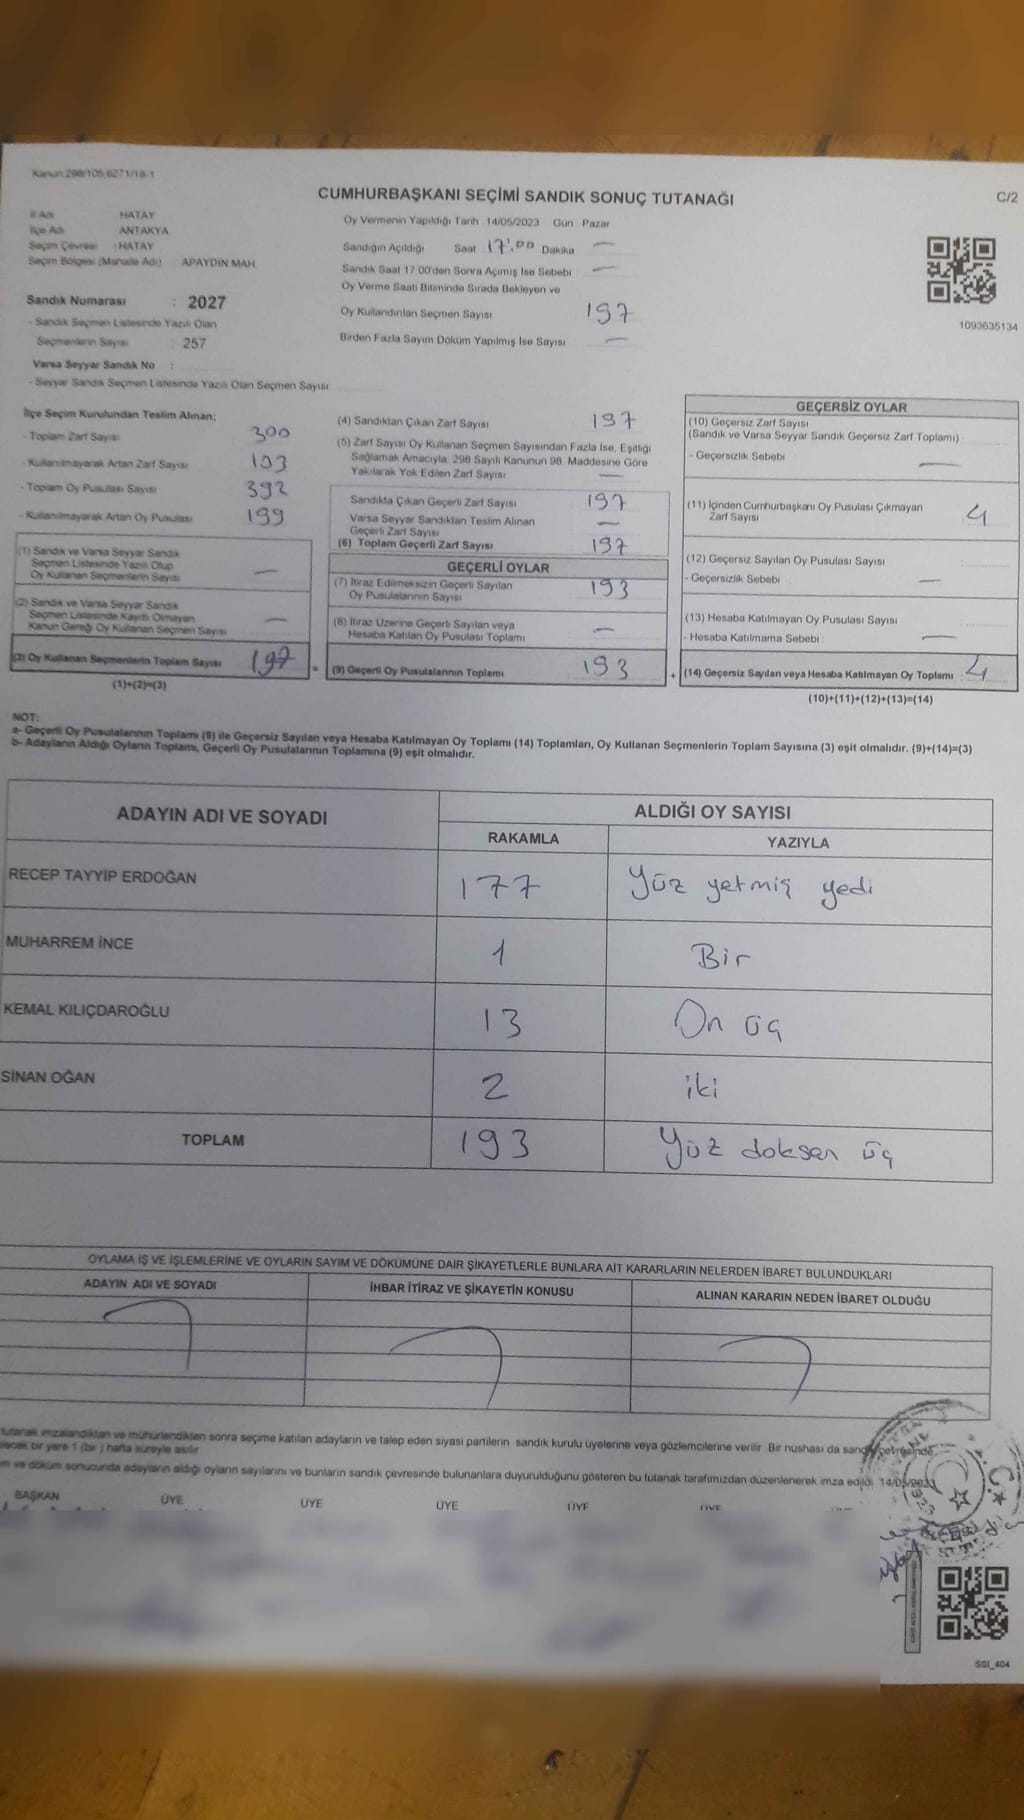 Kanun:298/105,6271/18-1
CUMHURBAŞKANI SEÇİMİ SANDIK SONUÇ TUTANAĞI
C/2
İl Adı : HATAY
İlçe Adı : ANTAKYA
Seçim Çevresi : HATAY
Seçim Bölgesi (Mahalle Adı) APAYDIN MAH.
Sandık Numarası : 2027
- Sandık Seçmen Listesinde Yazılı Olan
Seçmenlerin Sayısı : 257
Varsa Seyyar Sandık No :
- Seyyar Sandık Seçmen Listesinde Yazılı Olan Seçmen Sayısı
Oy Vermenin Yapıldığı Tarih : 14/05/2023 Gün : Pazar
Sandığın Açıldığı Saat 17:00 Dakika —
Sandık Saat 17:00'den Sonra Açımış İse Sebebi —
Oy Verme Saati Bitiminde Sırada Bekleyen ve
Oy Kullandırılan Seçmen Sayısı 197
Birden Fazla Sayım Döküm Yapılmış İse Sayısı —
1093635134
İlçe Seçim Kurulundan Teslim Alınan;
- Toplam Zarf Sayısı 300
- Kullanılmayarak Artan Zarf Sayısı 103
- Toplam Oy Pusulası Sayısı 392
- Kullanılmayarak Artan Oy Pusulası 199
(1) Sandık ve Varsa Seyyar Sandık
Seçmen Listesinde Yazılı Olup
Oy Kullanan Seçmenlerin Sayısı —
(2) Sandık ve Varsa Seyyar Sandık
Seçmen Listesinde Kayıtlı Olmayan
Kanun Gereği Oy Kullanan Seçmen Sayısı —
(3) Oy Kullanan Seçmenlerin Toplam Sayısı 197
(1)+(2)=(3)
(4) Sandıktan Çıkan Zarf Sayısı 197
(5) Zarf Sayısı Oy Kullanan Seçmen Sayısından Fazla İse, Eşitliği
Sağlamak Amacıyla; 298 Sayılı Kanunun 98. Maddesine Göre
Yakılarak Yok Edilen Zarf Sayısı —
Sandıkta Çıkan Geçerli Zarf Sayısı 197
Varsa Seyyar Sandıktan Teslim Alınan
Geçerli Zarf Sayısı —
(6) Toplam Geçerli Zarf Sayısı 197
GEÇERLİ OYLAR
(7) İtiraz Edilmeksizin Geçerli Sayılan
Oy Pusulalarının Sayısı 193
(8) İtiraz Üzerine Geçerli Sayılan veya
Hesaba Katılan Oy Pusulası Toplamı —
= (9) Geçerli Oy Pusulalarının Toplamı 193
GEÇERSİZ OYLAR
(10) Geçersiz Zarf Sayısı
(Sandık ve Varsa Seyyar Sandık Geçersiz Zarf Toplamı)
- Geçersizlik Sebebi : —
(11) İçinden Cumhurbaşkanı Oy Pusulası Çıkmayan
Zarf Sayısı 4
(12) Geçersiz Sayılan Oy Pusulası Sayısı
- Geçersizlik Sebebi : —
(13) Hesaba Katılmayan Oy Pusulası Sayısı
- Hesaba Katılmama Sebebi : —
+ (14) Geçersiz Sayılan veya Hesaba Katılmayan Oy Toplamı : 4
(10)+(11)+(12)+(13)=(14)
NOT:
a- Geçerli Oy Pusulalarının Toplamı (9) ile Geçersiz Sayılan veya Hesaba Katılmayan Oy Toplamı (14) Toplamları, Oy Kullanan Seçmenlerin Toplam Sayısına (3) eşit olmalıdır. (9)+(14)=(3)
b- Adayların Aldığı Oyların Toplamı, Geçerli Oy Pusulalarının Toplamına (9) eşit olmalıdır.
ADAYIN ADI VE SOYADI ALDIĞI OY SAYISI
RAKAMLA YAZIYLA
RECEP TAYYİP ERDOĞAN 177 Yüz yetmiş yedi
MUHARREM İNCE 1 Bir
KEMAL KILIÇDAROĞLU 13 On üç
SİNAN OĞAN 2 iki
TOPLAM 193 Yüz doksan üç
OYLAMA İŞ VE İŞLEMLERİNE VE OYLARIN SAYIM VE DÖKÜMÜNE DAİR ŞİKAYETLERLE BUNLARA AİT KARARLARIN NELERDEN İBARET BULUNDUKLARI
ADAYIN ADI VE SOYADI İHBAR İTİRAZ VE ŞİKAYETİN KONUSU ALINAN KARARIN NEDEN İBARET OLDUĞU
tutanak imzalandıktan ve mühürlendikten sonra seçime katılan adayların ve talep eden siyasi partilerin sandık kurulu üyelerine veya gözlemcilerine verilir. Bir nüshası da sandık çevresinde
bir yere 1 (bir) hafta süreyle asılır.
ve döküm sonucunda adayların aldığı oyların sayılarını ve bunların sandık çevresinde bulunanlara duyurulduğunu gösteren bu tutanak tarafımızdan düzenlenerek imza edildi. 14/05/2023
BAŞKAN ÜYE ÜYE ÜYE ÜYE ÜYE
SSI_404